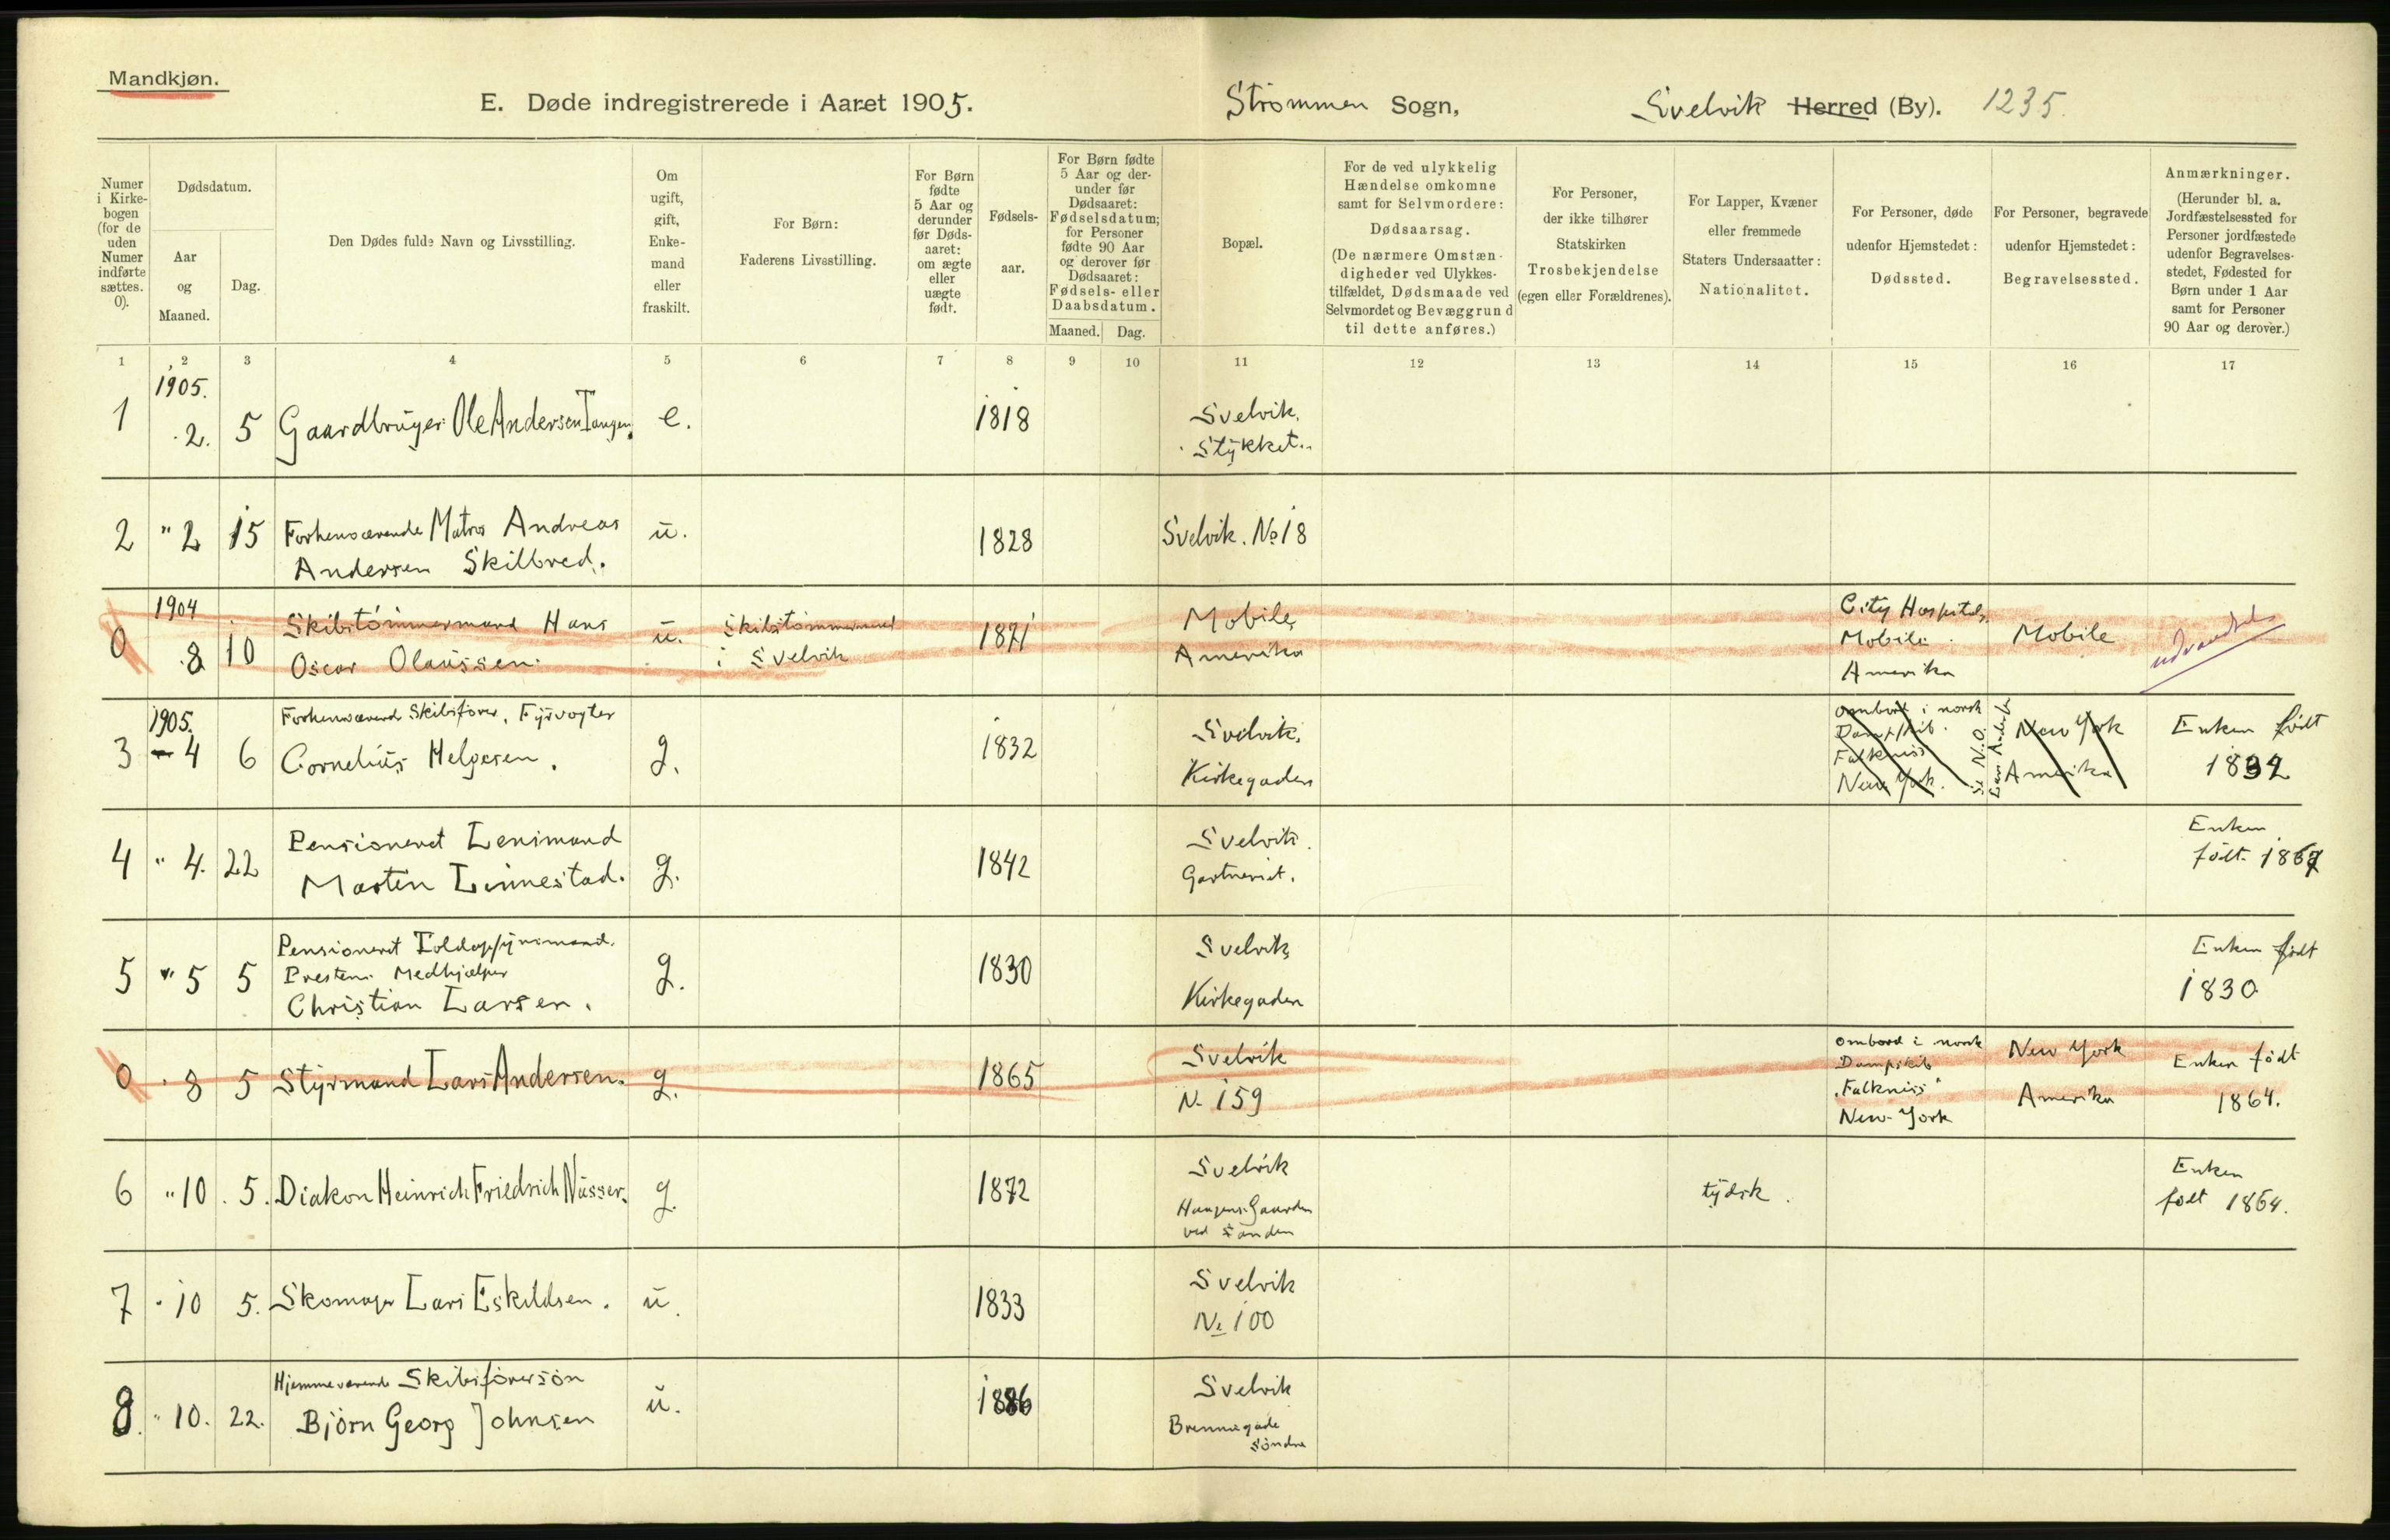 Mandkjøn.
E. Døde indregistrerede i Aaret 1905.
Strømmen Sogn, Svelvik Herred (By). 1235.
Numer i Kirkebogen (for de uden Numer indførte sættes. 0).
Dødsdatum.
Aar og Maaned.
Dag.
Den Dødes fulde Navn og Livsstilling.
Om ugift, gift, Enkemand eller fraskilt.
For Børn: Faderens Livsstilling.
For Børn fødte 5 Aar og derunder før Dødsaaret: om ægte eller uægte født.
Fødselsaar.
For Børn fødte 5 Aar og derunder før Dødsaaret: Fødselsdatum; for Personer fødte 90 Aar og derover før Dødsaaret: Fødsels- eller Daabsdatum.
Maaned. Dag.
Bopæl.
For de ved ulykkelig Hændelse omkomne samt for Selvmordere: Dødsaarsag. (De nærmere Omstændigheder ved Ulykkestilfældet, Dødsmaade ved Selvmordet og Bevæggrund til dette anføres.)
For Personer, der ikke tilhører Statskirken Trosbekjendelse (egen eller Forældrenes).
For Lapper, Kvæner eller fremmede Staters Undersaatter: Nationalitet.
For Personer, døde udenfor Hjemstedet: Dødssted.
For Personer, begravede udenfor Hjemstedet: Begravelsessted.
Anmærkninger. (Herunder bl. a. Jordfæstelsessted for Personer jordfæstede udenfor Begravelsesstedet, Fødested for Børn under 1 Aar samt for Personer 90 Aar og derover.)
1 2 3 4 5 6 7 8 9 10 11 12 13 14 15 16 17
1 1905. 2. 5 Gaardbruger Ole Andersen Tangen. e. 1818 Svelvik. Stykket.
2 " 2 15 Forhenværende Matros Andreas
Andersen Skilbred. u. 1828 Svelvik. No 18
0 1904 8 10 Skibstømmermand Hans
Oscar Olaussen. u. Skibstømmermand
i Svelvik 1871 Mobile,
Amerika City Hospital,
Mobile
Amerika Mobile udvandret
3 1905. 4 6 Forhenværende Skibsfører, Fyrvogter
Cornelius Helgesen. g. 1832 Svelvik.
Kirkegaden ombord i norsk
Dampskib
Falkniss
New York. Se N. O.
Lars Anders New York
Amerika Enken født
1832
4 " 4. 22 Pensioneret Lensmand
Martin Linnestad. g. 1842 Svelvik.
Gartneriet. Enken
født 1867
5 " 5 5 Pensioneret Toldopsynsmand.
Prestens Medhjælper
Christian Larsen. g. 1830 Svelvik,
Kirkegaden Enken født
1830
0 " 8 5 Styrmand Lars Andersen. g. 1865 Svelvik
N. 159 ombord i norsk
Dampskib
"Falkniss"
New-York New York
Amerika Enken født
1864.
6 " 10. 5. Diakon Heinrich Friedrich Nüsser. g. 1872 Svelvik
Haagens Gaarden
ved Sanden tydsk. Enken
født 1864.
7 " 10 5. Skomager Lars Eskildsen. u. 1833 Svelvik
No 100
8. " 10. 22. Hjemmeværende Skibsførersøn
Bjørn Georg Johnsen u. 1886 Svelvik
Brennegade
Søndre